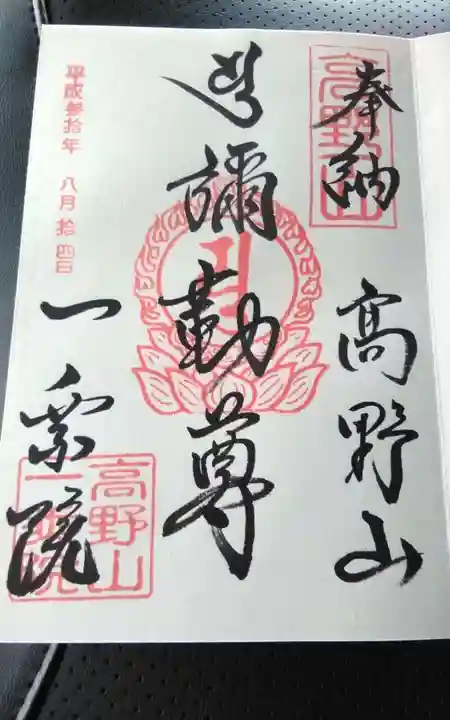 奉納 高野山
彌勒尊
一乗院
平成参拾年 八月拾四日
高野山
高野山
一乗院